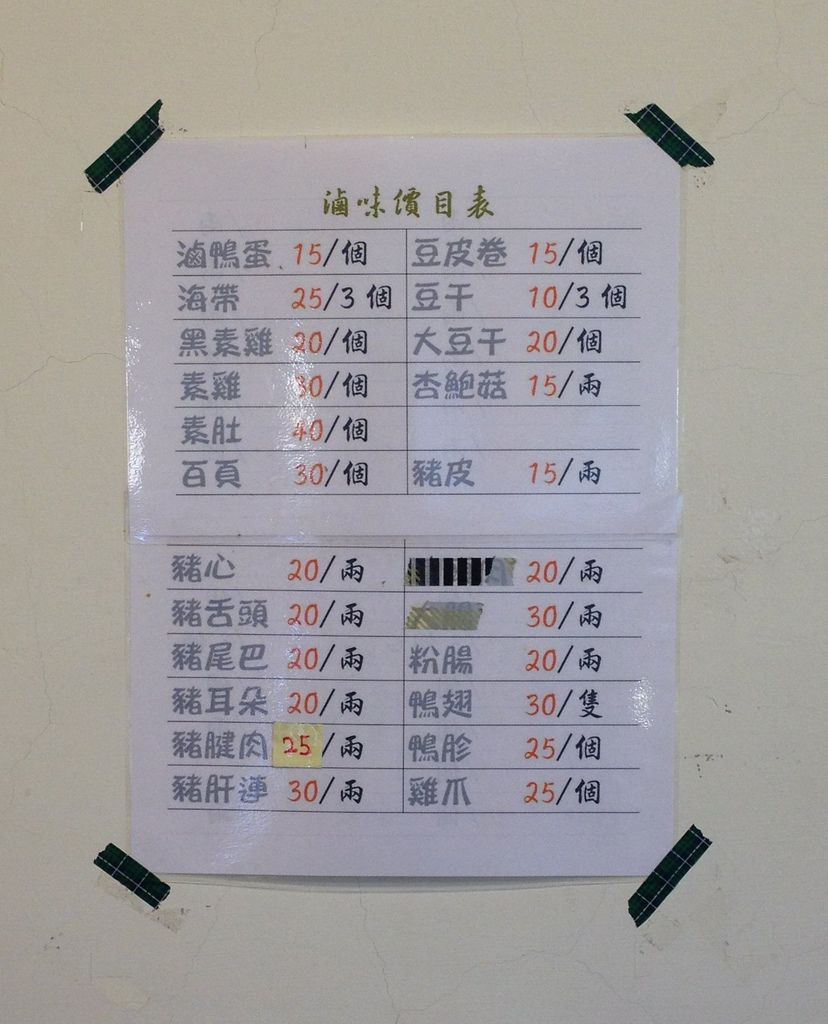 滷味價目表
滷鴨蛋 15/個 豆皮卷 15/個
海帶 25/3個 豆干 10/3個
黑素雞 20/個 大豆干 20/個
素雞 30/個 杏鮑菇 15/兩
素肚 40/個
百頁 30/個 豬皮 15/兩
豬心 20/兩 20/兩
豬舌頭 20/兩 30/兩
豬尾巴 20/兩 粉腸 20/兩
豬耳朵 20/兩 鴨翅 30/隻
豬腱肉 25/兩 鴨胗 25/個
豬肝連 30/兩 雞爪 25/個